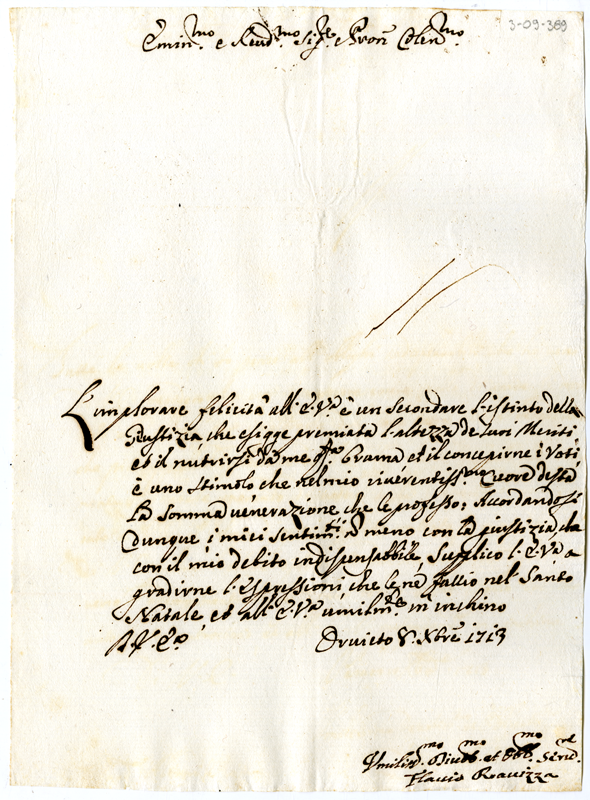 3-09-369
Emin.mo e Revd.mo Sig.re Pron Colen.mo
L'implorare felicità all'E.Va è un secondare l'istinto della
Giustizia che esigge premiata l'altezza de suoi Meriti
et il nutrirsi da me q.sta brama et il concepirne i Voti
è uno stimolo che nel mio riverentiss.mo Cuore desta
la somma venerazione che le professo; Accordandosi
dunque i miei sentim.ti n meno con la giustizia, che
con il mio debito indispensabbile, Supplico l'E.Va a
gradirne l'Espressioni, che le ne faccio nel Santo
Natale, et all'E.Va umilm.te m'inchino
Orvieto 8 Xbre 1713
Umiliss.mo Div.mo et Obb.mo Serv.re
Flavio Ravizza